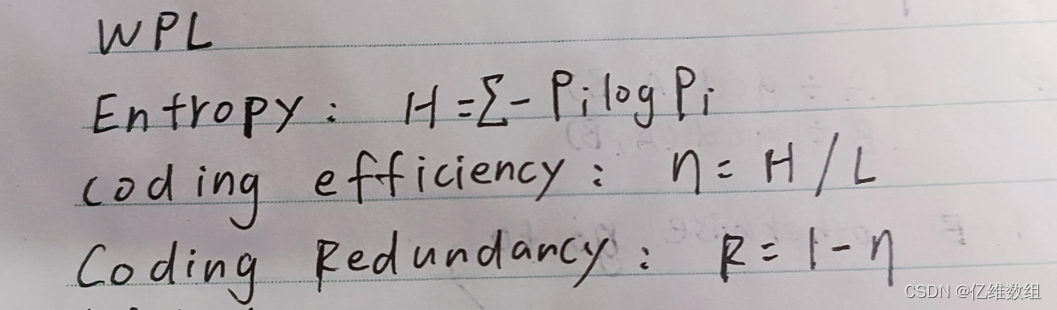 WPL
Entropy: H=Σ- Pi log Pi
Coding efficiency: η= H / L
Coding Redundancy: R= 1-η
CSDN @亿维数组